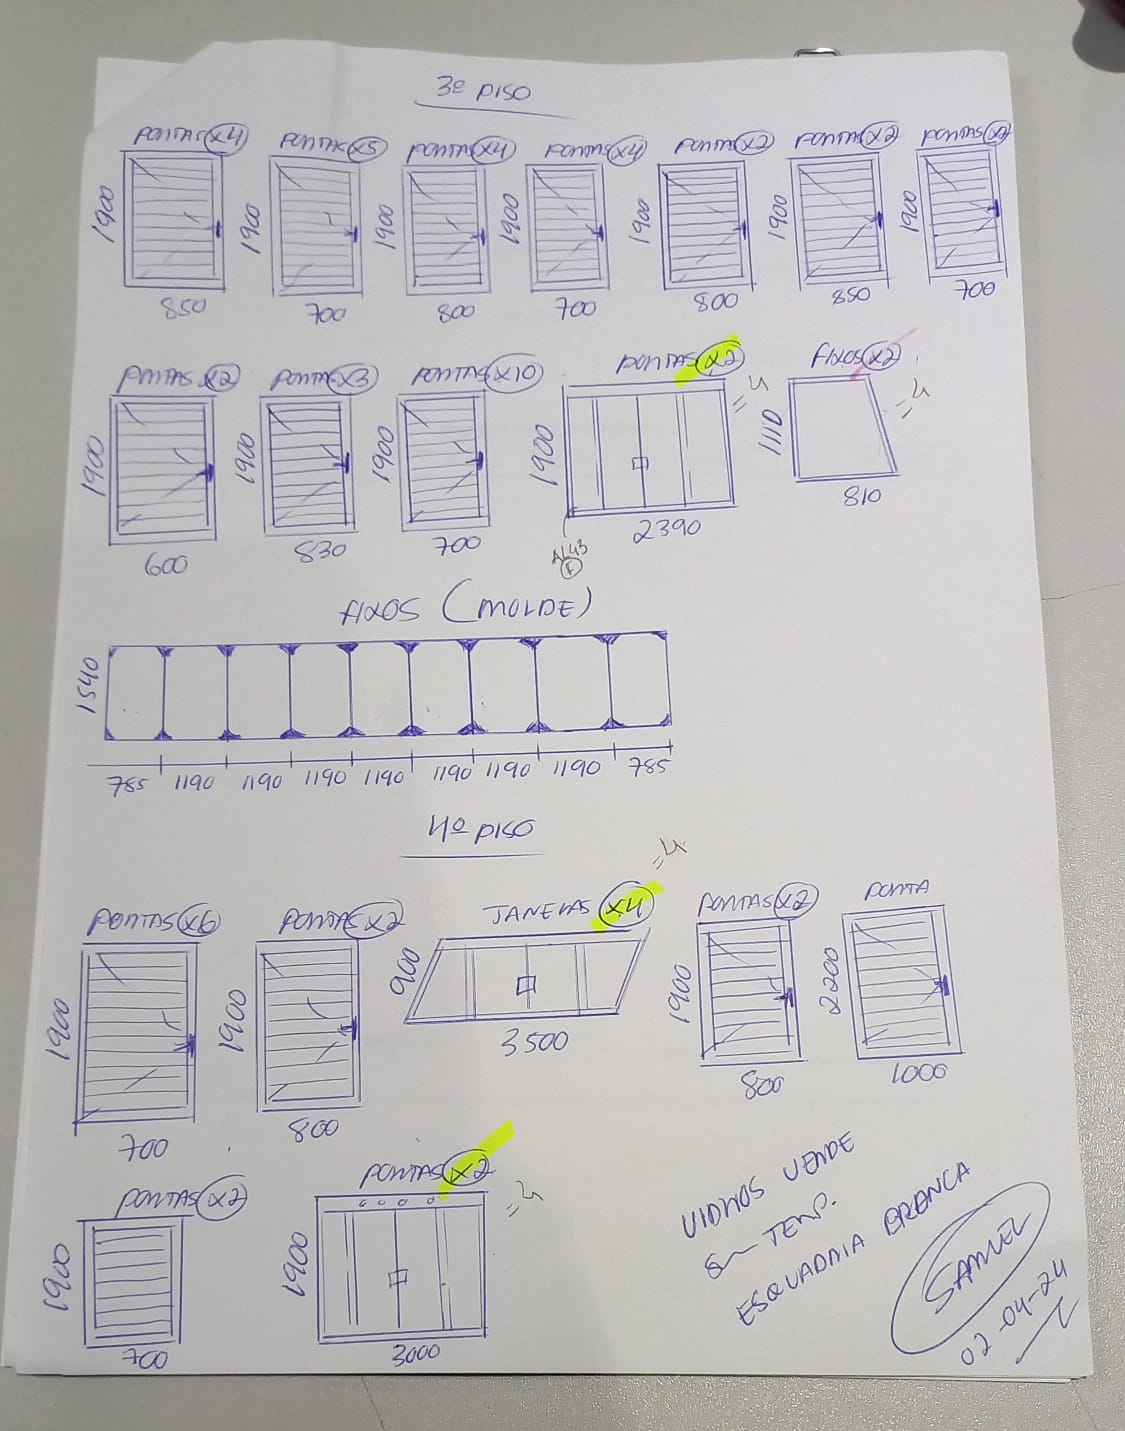 3º PISO
PORTAS X4
PORTAS X5
PORTAS X4
PORTAS X4
PORTAS X2
PORTAS X2
PORTAS
1900
1900
1900
1900
1900
1900
1900
850
700
800
700
800
850
700
PORTAS X2
PORTAS X3
PORTAS X10
PORTAS X2
=4
FIXOS X2
=4
1900
1900
1900
1900
1110
600
830
700
2390
810
AL43
FIXOS (MOLDE)
1540
785 1190 1190 1190 1190 1190 1190 1190 785
4º PISO
PORTAS X6
PORTAS X2
JANELAS X4
=4
PORTAS X2
PORTA
1900
1900
900
1900
2200
700
800
3500
800
1000
PORTAS X2
PORTAS X2
=4
1900
1900
700
3000
VIDROS VERDE
8 TEMP.
ESQUADRIA BRANCA
SAMUEL
02-04-24